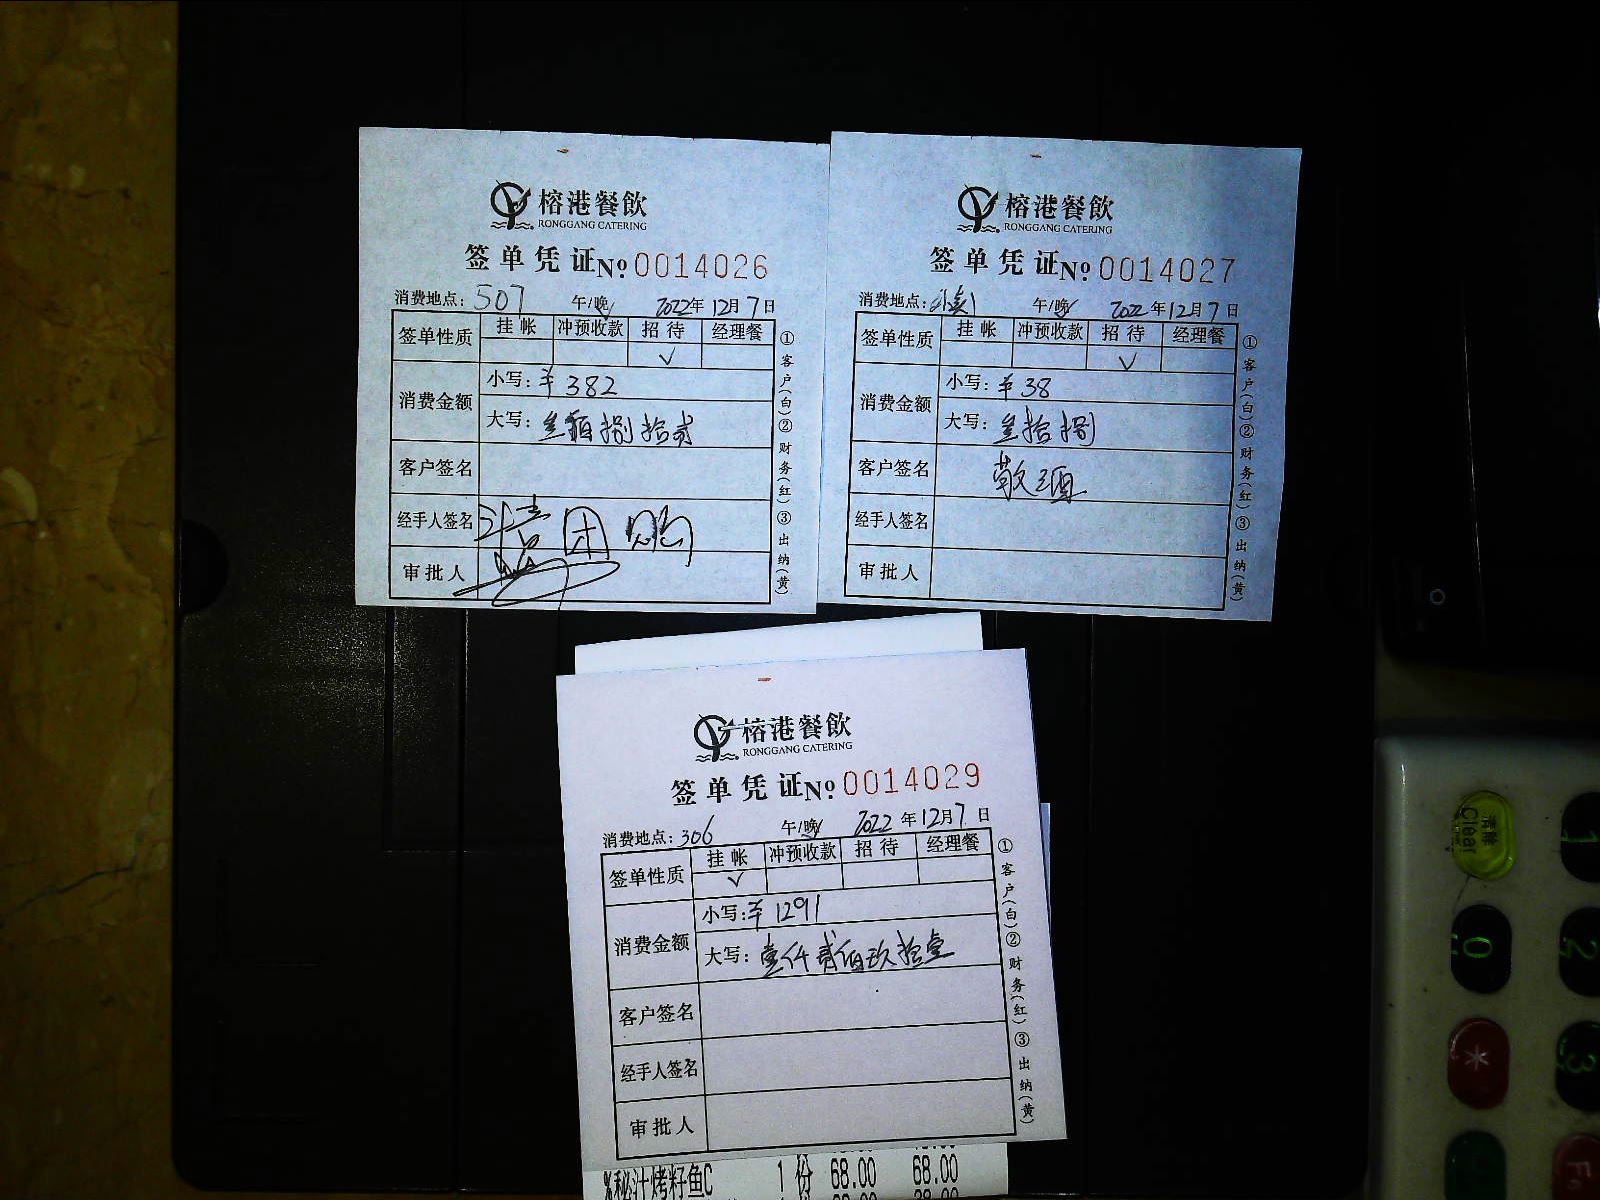 榕港餐飲
RONGGANG CATERING
签单凭证№0014026
消费地点:507 午/晚 2022年12月7日
签单性质 挂帐 冲预收款 招待 经理餐
✓
消费金额 小写:¥382
大写:叁佰捌拾贰
客户签名
经手人签名
审批人
①客户(白)②财务(红)③出纳(黄)
榕港餐飲
RONGGANG CATERING
签单凭证№0014027
消费地点: 午/晚 2022年12月7日
签单性质 挂帐 冲预收款 招待 经理餐
✓
消费金额 小写:¥38
大写:叁拾捌
客户签名 敬酒
经手人签名
审批人
①客户(白)②财务(红)③出纳(黄)
榕港餐飲
RONGGANG CATERING
签单凭证№0014029
消费地点:306 午/晚 2022年12月7日
签单性质 挂帐 冲预收款 招待 经理餐
✓
消费金额 小写:¥1291
大写:壹仟贰佰玖拾壹
客户签名
经手人签名
审批人
①客户(白)②财务(红)③出纳(黄)
%秘汁烤籽鱼C 1份 68.00 68.00
清除
Clear
1
0
2
*
3